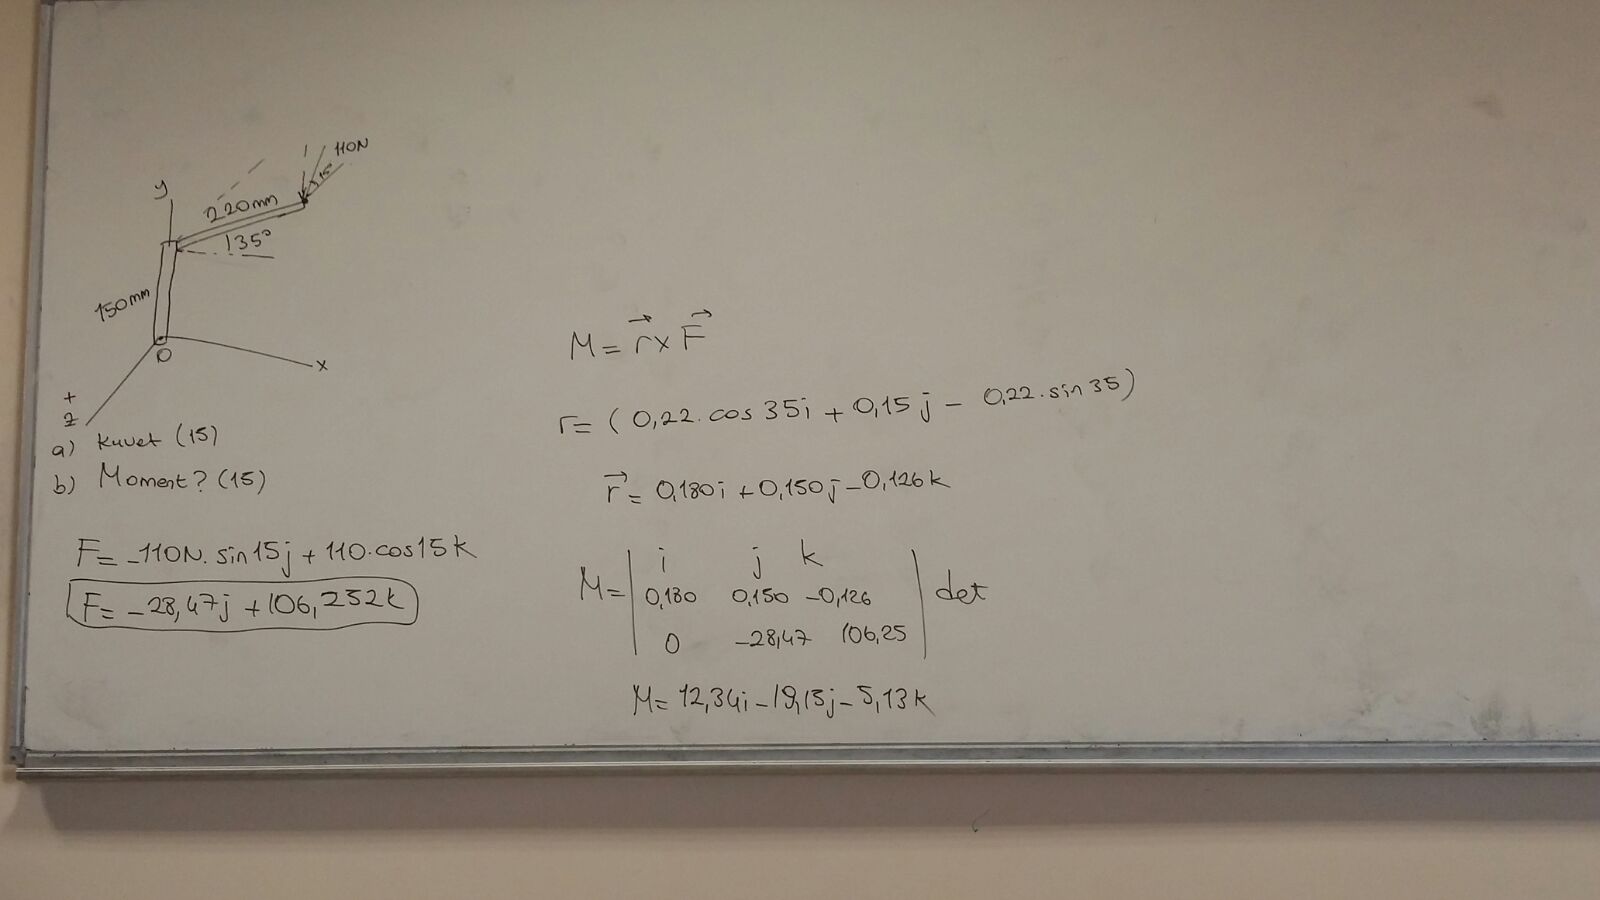 y
110N
15°
220mm
35°
150mm
O
x
+
z
a) Kuvet (15)
b) Moment? (15)
F= -110N. sin15j + 110.cos15k
F= -28,47j + 106,252k
M = r x F
r= ( 0,22. cos 35i + 0,15 j - 0,22. sin 35)
r = 0,180i + 0,150j - 0,126k
i j k
M= 0,180 0,150 -0,126 det
0 -28,47 106,25
M= 12,34i - 19,15j - 5,13k